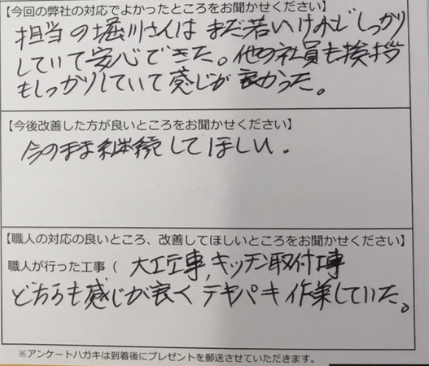 【今回の弊社の対応でよかったところをお聞かせください】
担当の堀川さんは まだ若いけれどしっかり
していて安心できた。他の社員も挨拶
もしっかりしていて感じが良かった。
【今後改善した方が良いところをお聞かせください】
今のまま継続してほしい。
【職人の対応の良いところ、改善してほしいところをお聞かせください】
職人が行った工事（ 大工工事,キッチン取付工事
どちらも感じが良く テキパキ作業していた。
※アンケートハガキは到着後にプレゼントを郵送させていただきます。